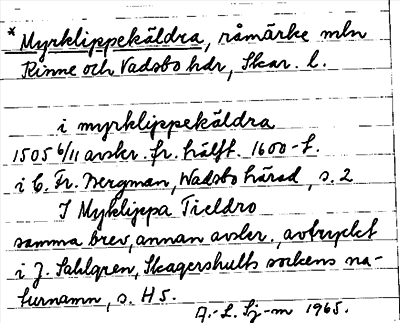 * Myrklippekäldra, råmärke mln
Kinne och Vadsbo hdr, Skar. l.
i myrklippekäldra
1505 6/11 avskr. fr. hälft. 1600-t.
i C. Fr. Bergman, Wadsbo härad, s. 2
I Myklippa Tieldro
samma brev, annan avskr., avtryckt
i J. Sahlgren, Skagershults sockens na-
turnamn, s. H5.
A.-L. Sj-m 1965.